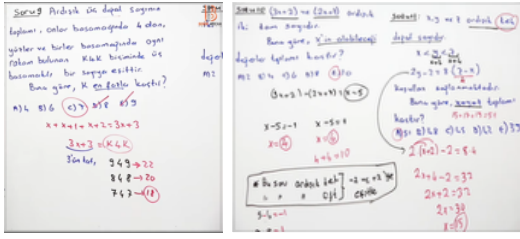 Soru 9 Ardışık üç doğal sayının
toplamı, onlar basamağında 4 olan,
yüzler ve birler basamağında aynı
rakam bulunan K4K biçiminde üç
basamaklı bir sayıya eşittir.
Buna göre, K en fazla kaçtır?
A) 4 B) 6 C) 7 D) 8 E) 9
x + x+1 + x+2 = 3x+3
3x+3 = K4K
949 → 22
848 → 20
747 → 18
(3x+2) ve (2x+7) ardışık
iki tam sayıdır.
Buna göre, x'in alabileceği
değerler toplamı kaçtır?
(3x+2) - (2x+7) = x-5
x-5=-1
x=4
x=6
4+6=10
x, y ve z ardışık tek
doğal sayıdır.
x < y < z
x+2 x+4
koşulu sağlanmaktadır.
Buna göre, x+y+z toplamı
kaçtır?
15+17+19=51
A) 51 B) 48 C) 45 D) 42 E) 39
2(x+2) - 2 = 8.4
2x+4-2 = 32
2x+2 = 32
2x = 30
x = 15